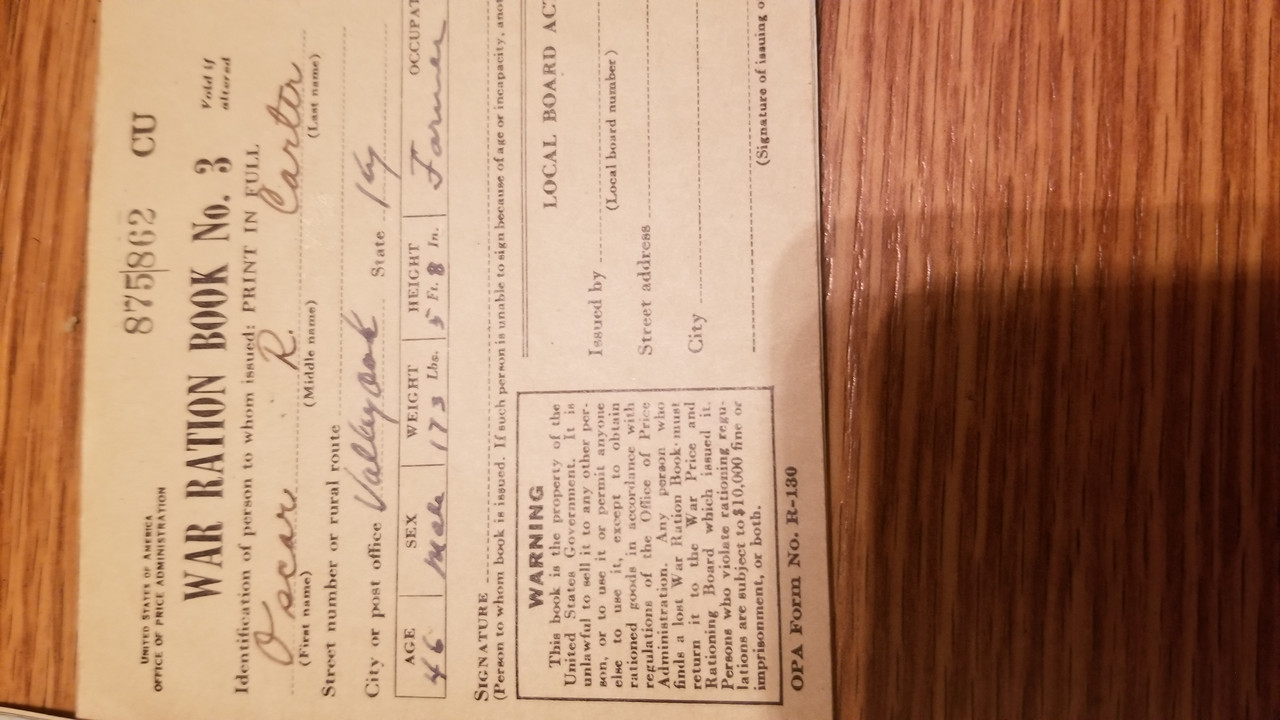 875862 CU
UNITED STATES OF AMERICA
OFFICE OF PRICE ADMINISTRATION
WAR RATION BOOK No. 3
Void if
altered
Identification of person to whom issued: PRINT IN FULL
Oscar R. Carter
(First name) (Middle name) (Last name)
Street number or rural route
City or post office Valley Oak State Ky
AGE SEX WEIGHT HEIGHT OCCUPAT
46 Male 173 Lbs. 5 Ft. 8 In. Farmer
SIGNATURE
(Person to whom book is issued. If such person is unable to sign because of age or incapacity, anot
WARNING
This book is the property of the
United States Government. It is
unlawful to sell it to any other per-
son, or to use it or permit anyone
else to use it, except to obtain
rationed goods in accordance with
regulations of the Office of Price
Administration. Any person who
finds a lost War Ration Book must
return it to the War Price and
Rationing Board which issued it.
Persons who violate rationing regu-
lations are subject to $10,000 fine or
imprisonment, or both.
LOCAL BOARD AC
Issued by
(Local board number)
Street address
City
(Signature of issuing o
OPA Form No. R-130